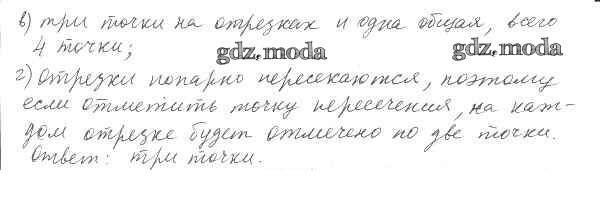 в) три точки на отрезках и одна общая, всего
4 точки;
gdz.moda
gdz.moda
г) Отрезки попарно пересекаются, поэтому
если отметить точку пересечения, на каж-
дом отрезке будет отмечено по две точки.
Ответ: три точки.